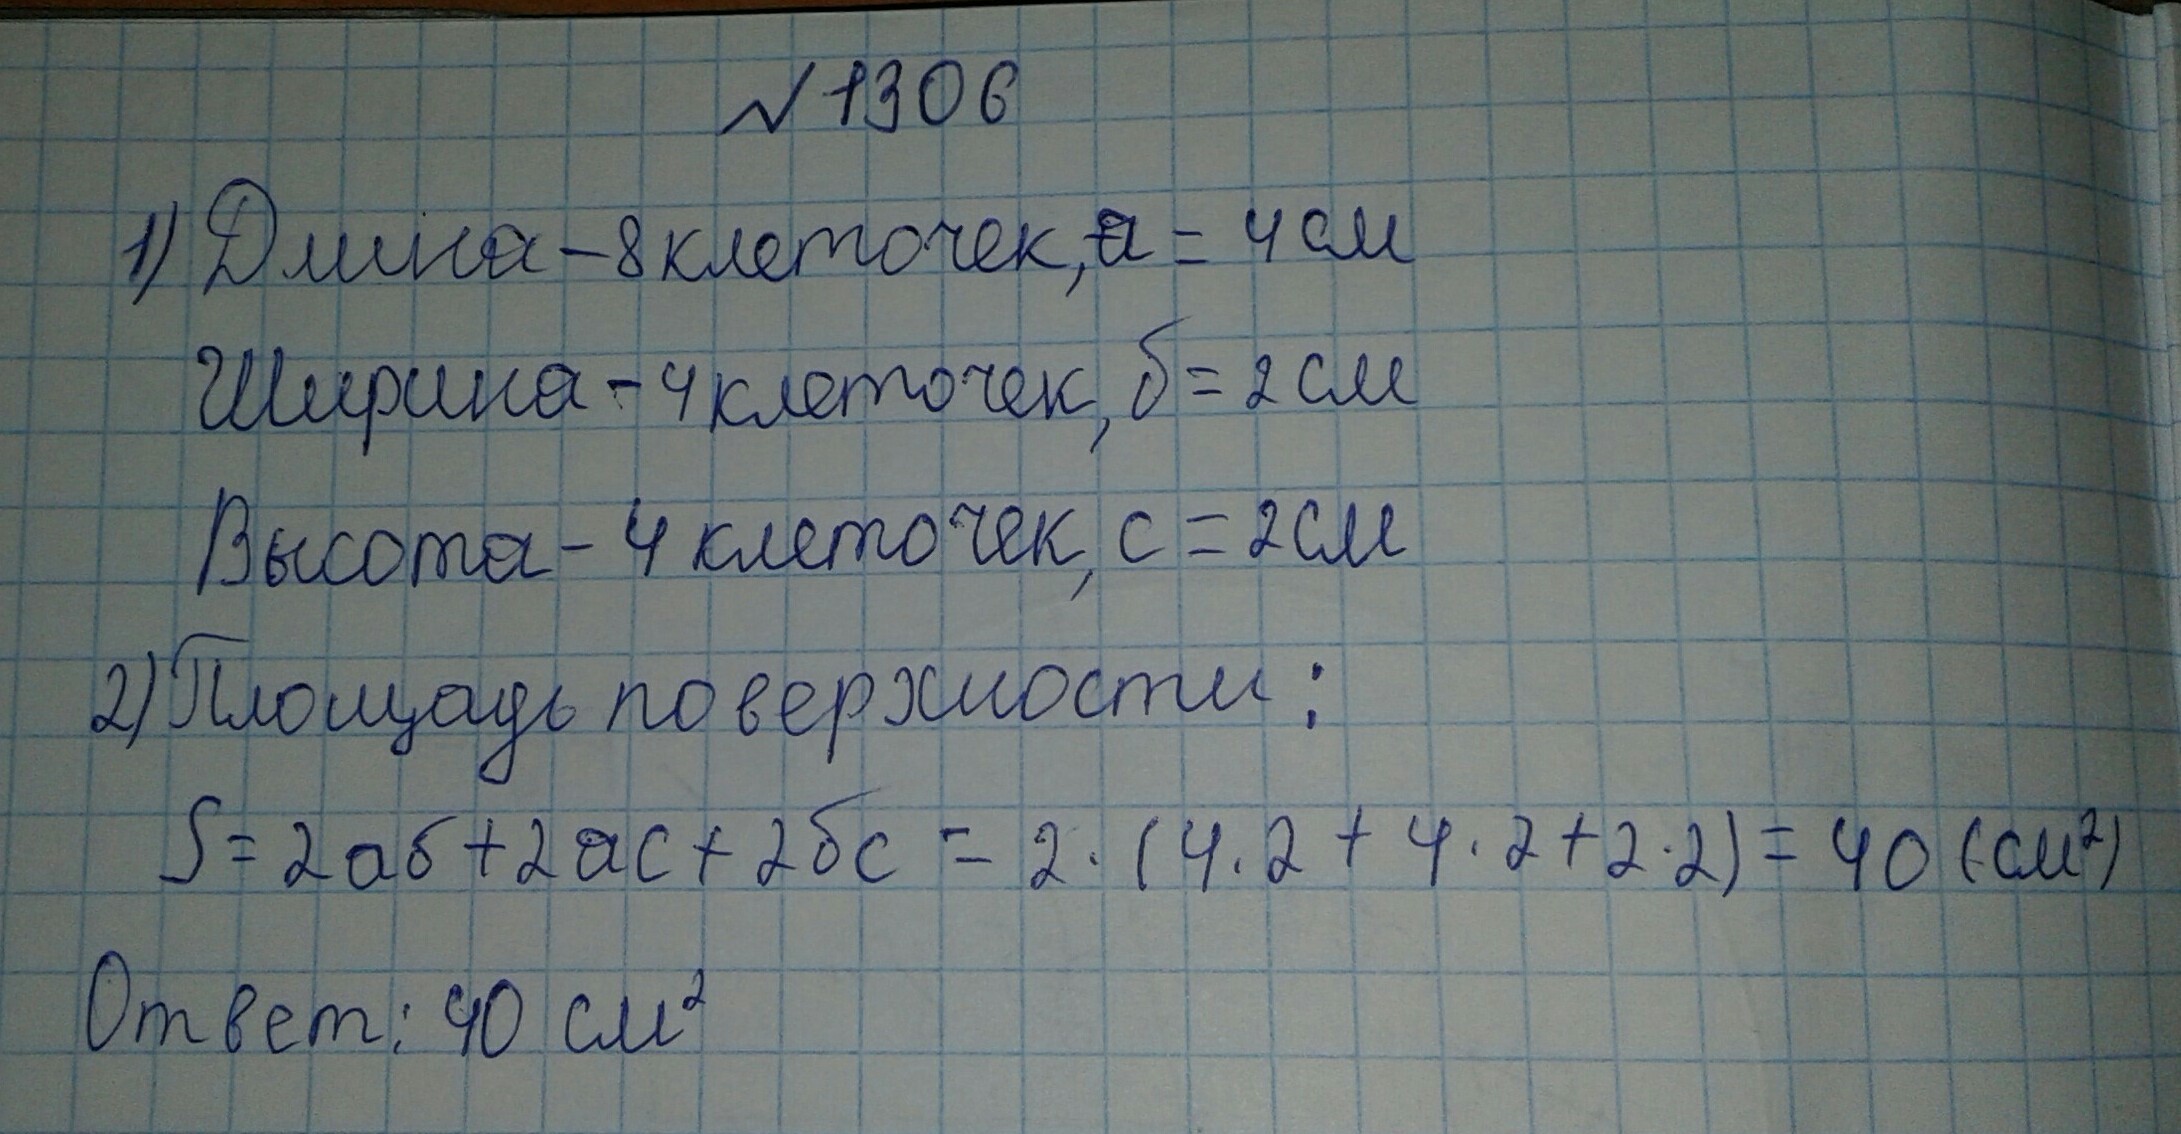 №1306
1) Длина - 8 клеточек, а = 4 см
Ширина - 4 клеточек, б = 2 см
Высота - 4 клеточек, с = 2 см
2) Площадь поверхности:
S = 2аб + 2ас + 2бс = 2 · (4 · 2 + 4 · 2 + 2 · 2) = 40 (см²)
Ответ: 40 см²